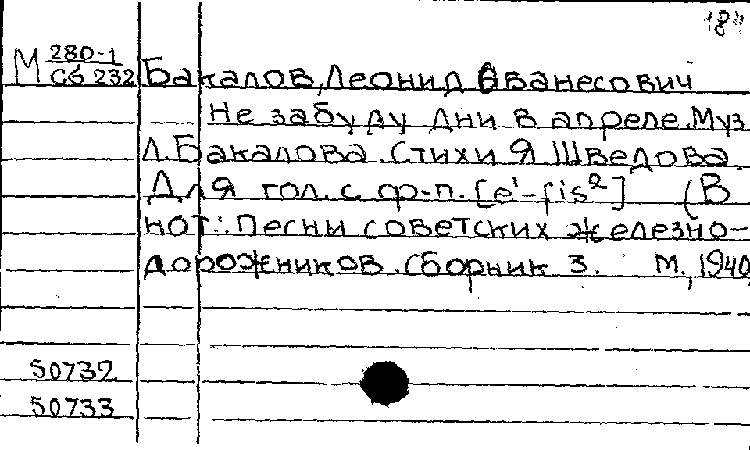 184
М 280-1
Сб 232
Бакалов, Леонид Ованесович
Не забуду дни в апреле. Муз
Л. Бакалова. Стихи Я Шведова.
Для гол. с ф-п. [e¹-fis²] (В
нот: Песни советских железно-
дорожников. Сборник 3. М., 1940,
50732
50733